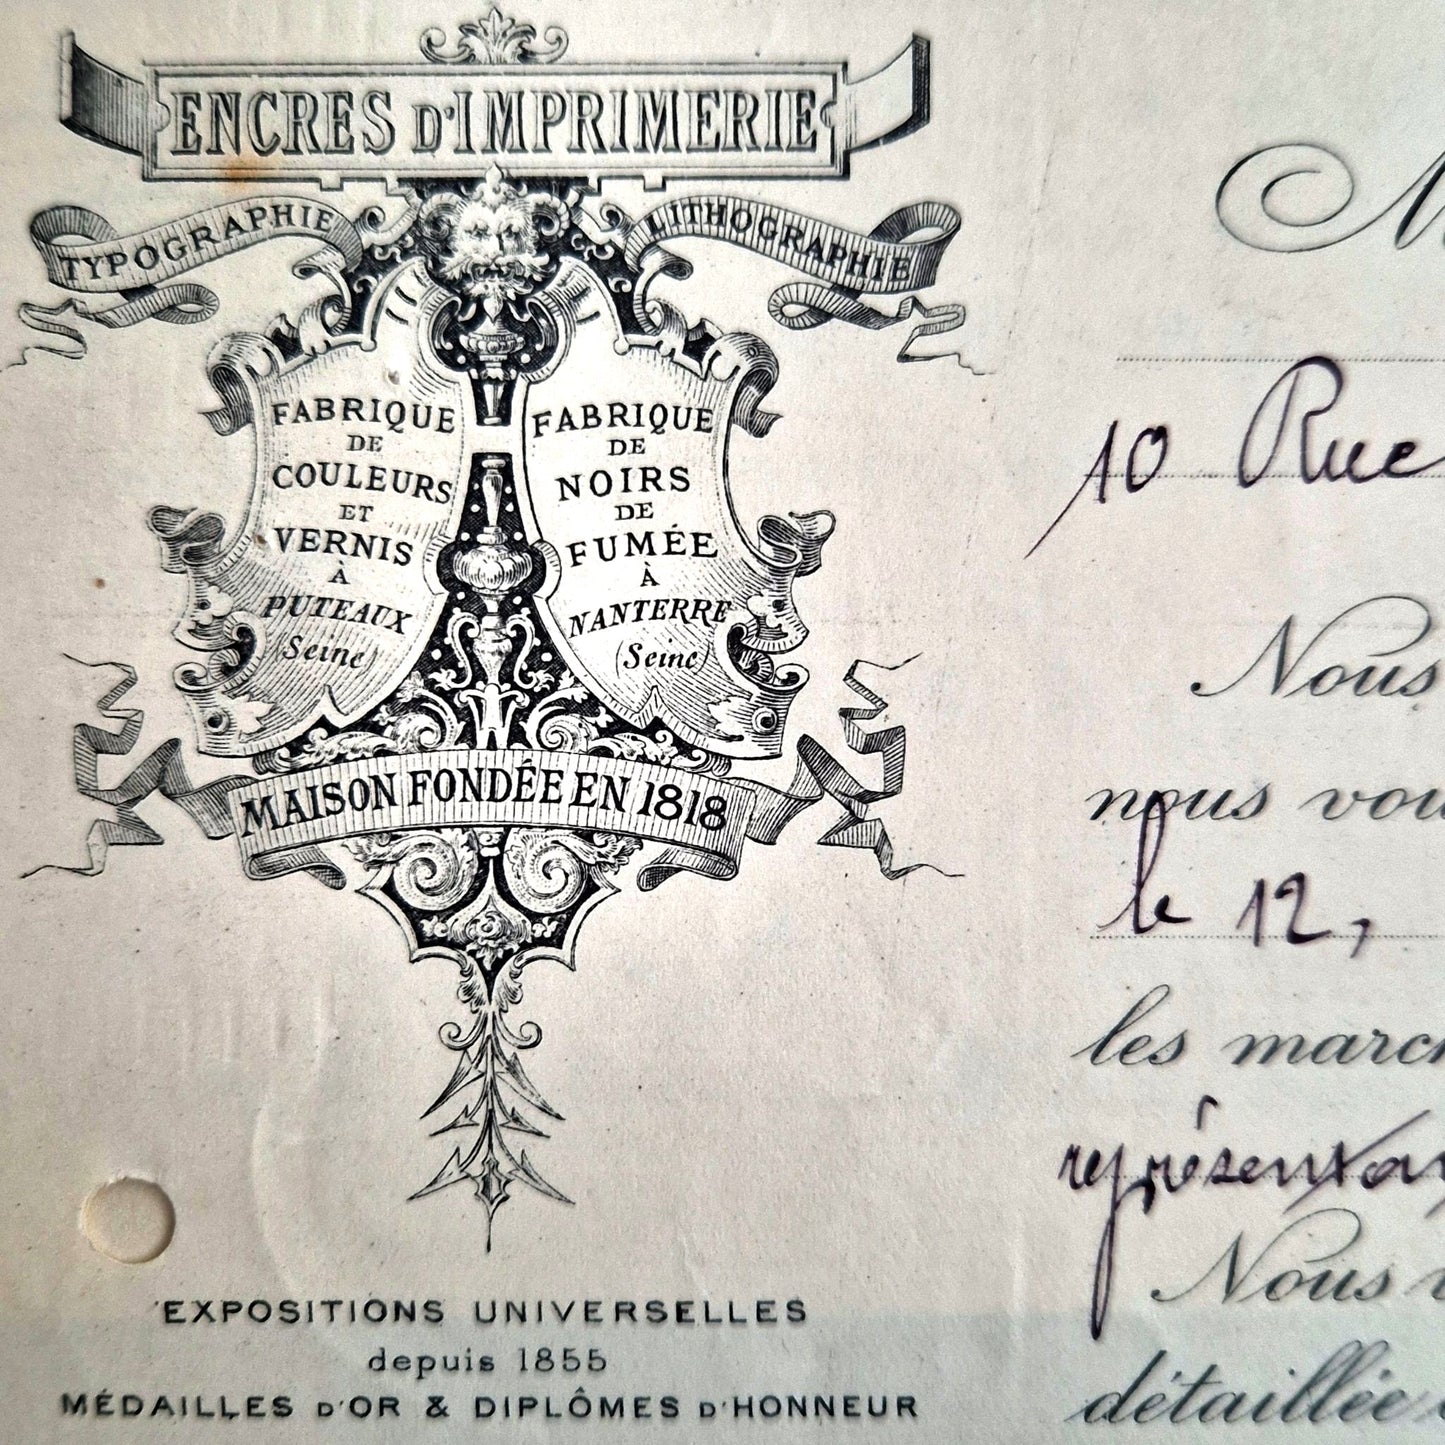 ENCRES D'IMPRIMERIE
TYPOGRAPHIE
LITHOGRAPHIE
FABRIQUE
DE
COULEURS
ET
VERNIS
À
PUTEAUX
(Seine)
FABRIQUE
DE
NOIRS
DE
FUMÉE
À
NANTERRE
(Seine)
MAISON FONDÉE EN 1818
EXPOSITIONS UNIVERSELLES
depuis 1855
MÉDAILLES D'OR & DIPLÔMES D'HONNEUR
M
10 Rue
Nous
nous vou
le 12,
les march
représentan
Nous v
détaillée